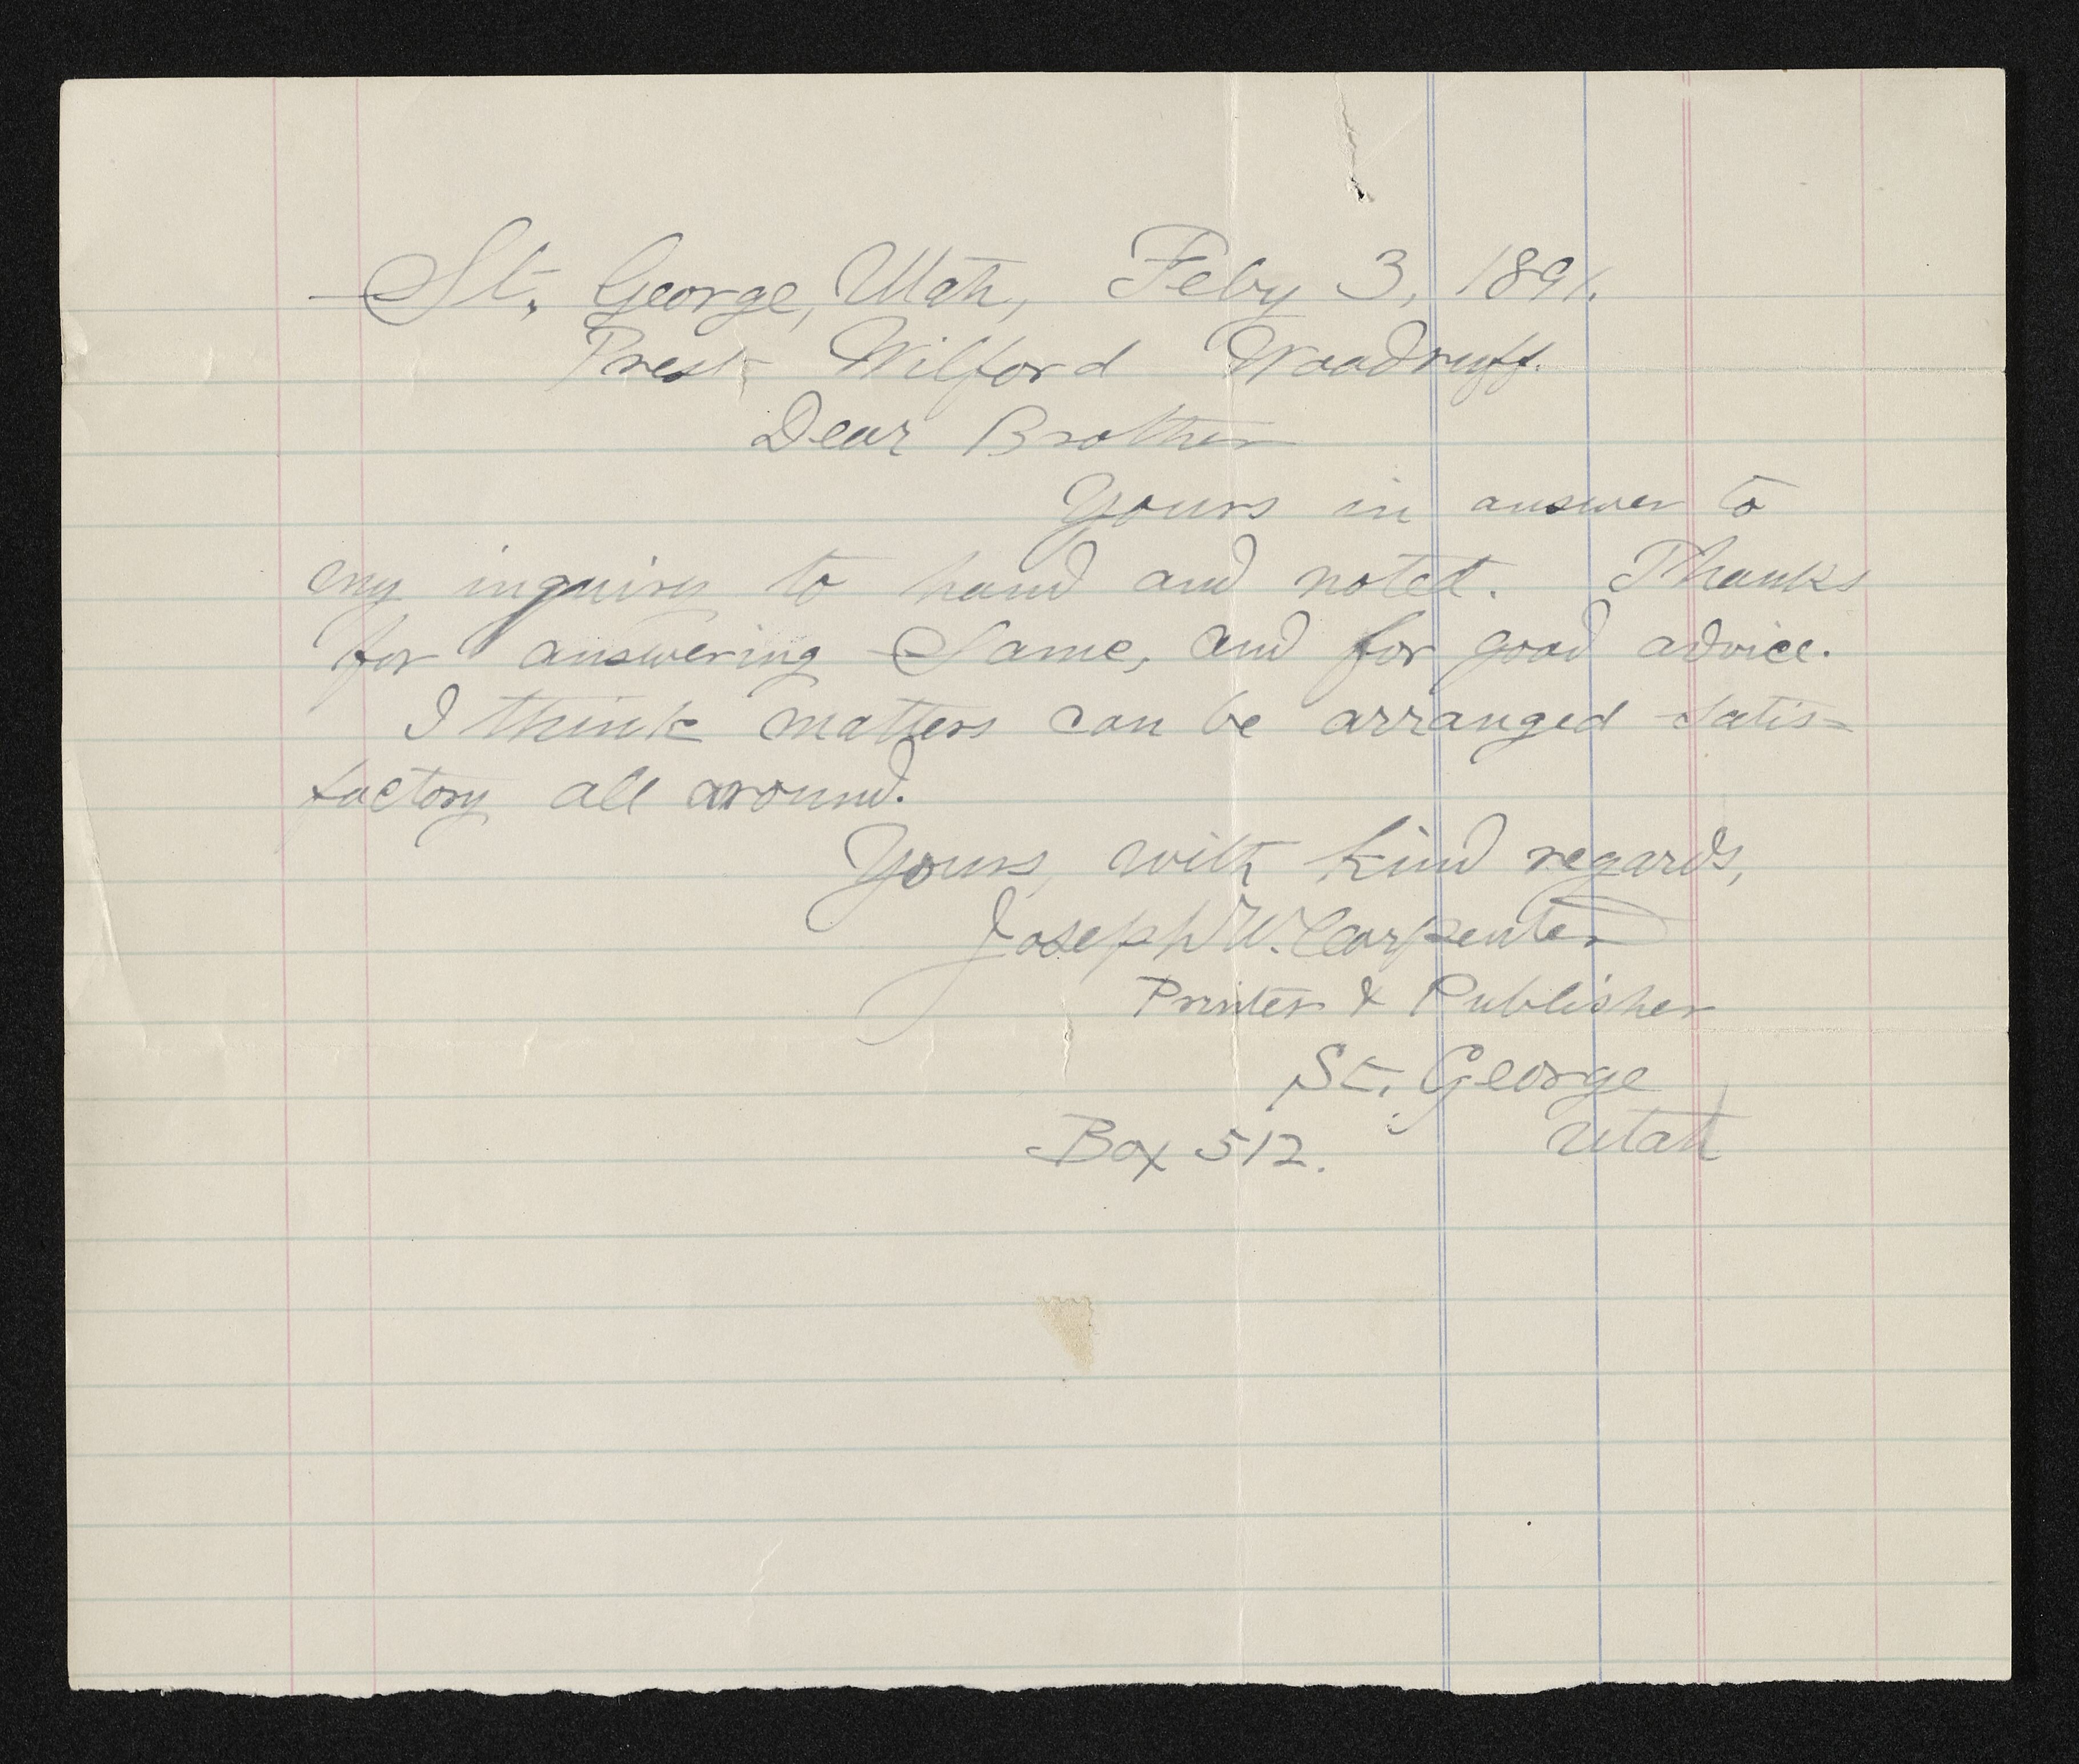 St. George, Utah, Feby 3, 1891.
Prest Wilford Woodruff.
Dear Brother
Yours in answer to
my inquiry to hand and noted. Thanks
for answering same, and for good advice.
I think matters can be arranged satis=
factory all around.
Yours, with kind regards,
Joseph W. Carpenter
Printer & Publisher
St. George
Box 512. Utah